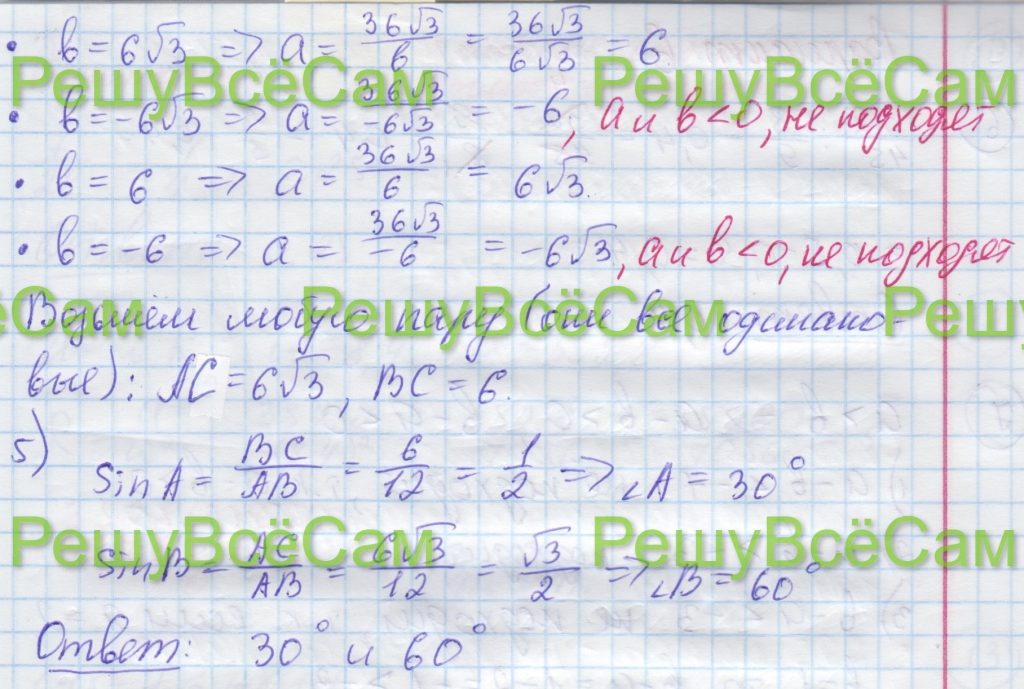 • b = 6√3 => a = 36√3/b = 36√3/6√3 = 6.
РешуВсёСам РешуВсёСам
• b = -6√3 => a = 36√3/-6√3 = -6, a и b < 0, не подходят
• b = 6 => a = 36√3/6 = 6√3.
• b = -6 => a = 36√3/-6 = -6√3, a и b < 0, не подходят
РешуВсёСам РешуВсёСам РешуВсёСам
Возьмём любую пару (они все одинако-
вые): AC = 6√3, BC = 6.
5)
sin A = BC/AB = 6/12 = 1/2 => ∠A = 30°
РешуВсёСам РешуВсёСам
sin B = AC/AB = 6√3/12 = √3/2 => ∠B = 60°
Ответ: 30° и 60°